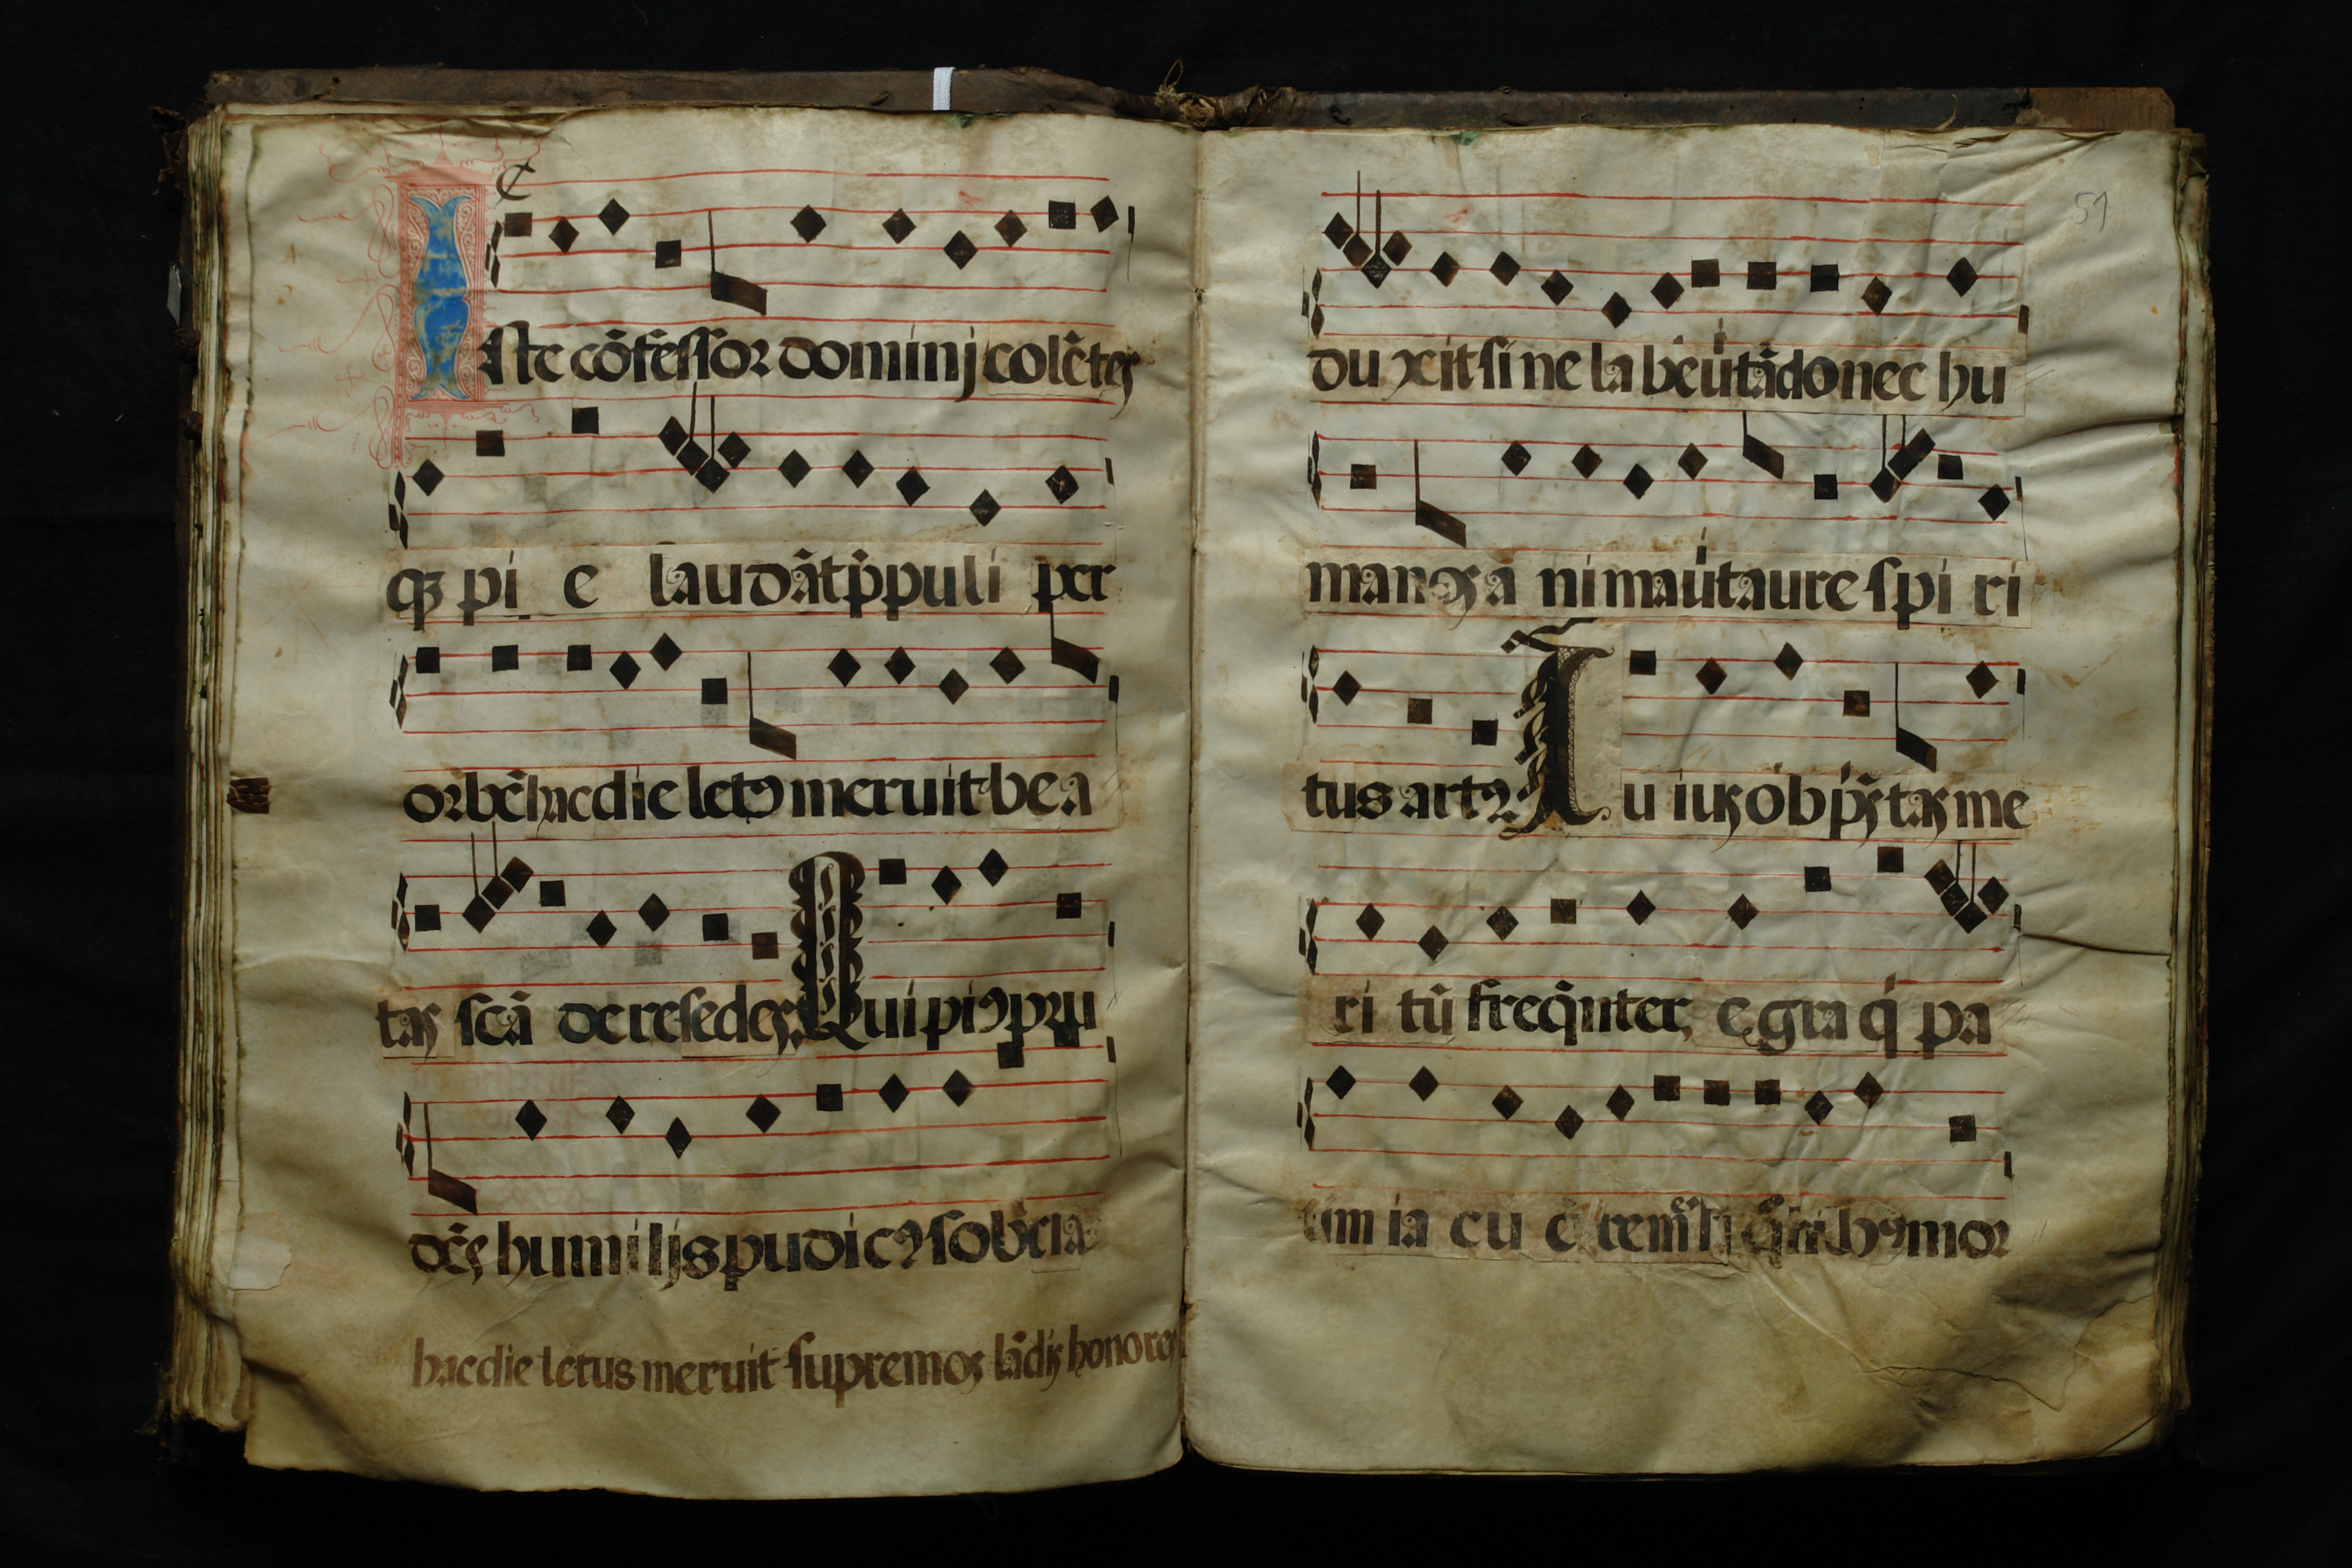 Iste cõfessor dominj colẽtes
qʒ pi e laudãt pp̃uli per
orbẽ hac die letꝰ meruit bea
tas scã dere sedes. Qui piꝰ pru
dẽs humilis pudicꝰ sobria
hac die letus meruit supremos lãdis honores
51
du xit sine labe ũtã donec hu
manos a nima ũt aure spi ri
tus artꝰ Cu ius ob p̃s tas me
ri tũ freq̃nter, egra q̃ pa
sim ia cu e re mẽ q̃ hꝰ mor